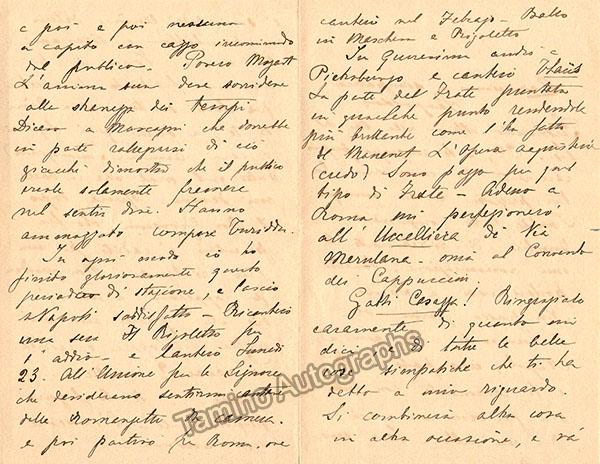 e poi e poi nessuno
a capito con caffo incominiando
dal pubblico - Povero Mozart
L'anima sua deve sorridere
alle stranezze dei tempi
Dicevo a Mascagni che dovrebbe
in parte rallegrarsi di ciò
giacchè dimostra che il pubblico
vuole solamente fremere
nel sentir dire. Hanno
ammazzato compare Turiddu.
In ogni modo io ho
finito gloriosamente questo
periodico di stagione, e lascio
Napoli soddisfatto - Ricanterò
una sera Il Rigoletto per
1° addio - e canterò Lunedì
23. All'Unione per le Signore
che desiderano sentirmi cantare
delle Romanzette da camera.
e poi partirò per Roma. ove
canterò nel Febrajo - Ballo
in Maschera e Rigoletto
In Quaresima andrò a
Pietroburgo e canterò Thaïs
La parte del Frate puntata
in qualche punto rendendola
più brillante come l'ha fatta
di Massenet L'Opera acquisterà
(credo) Sono pazzo per quel
tipo di Frate - Adesso a
Roma mi perfezionerò
all'Uccelliera di Via
Merulana - ossia al Convento
dei Cappuccini
Gatti Casazza! Ringrazialo
caramente di quanto mi
dici e di tutte le belle
cose simpatiche che ti ha
detto a mio riguardo.
Si combinerà altra cosa
in altra occasione, e và
Tamino Autographs